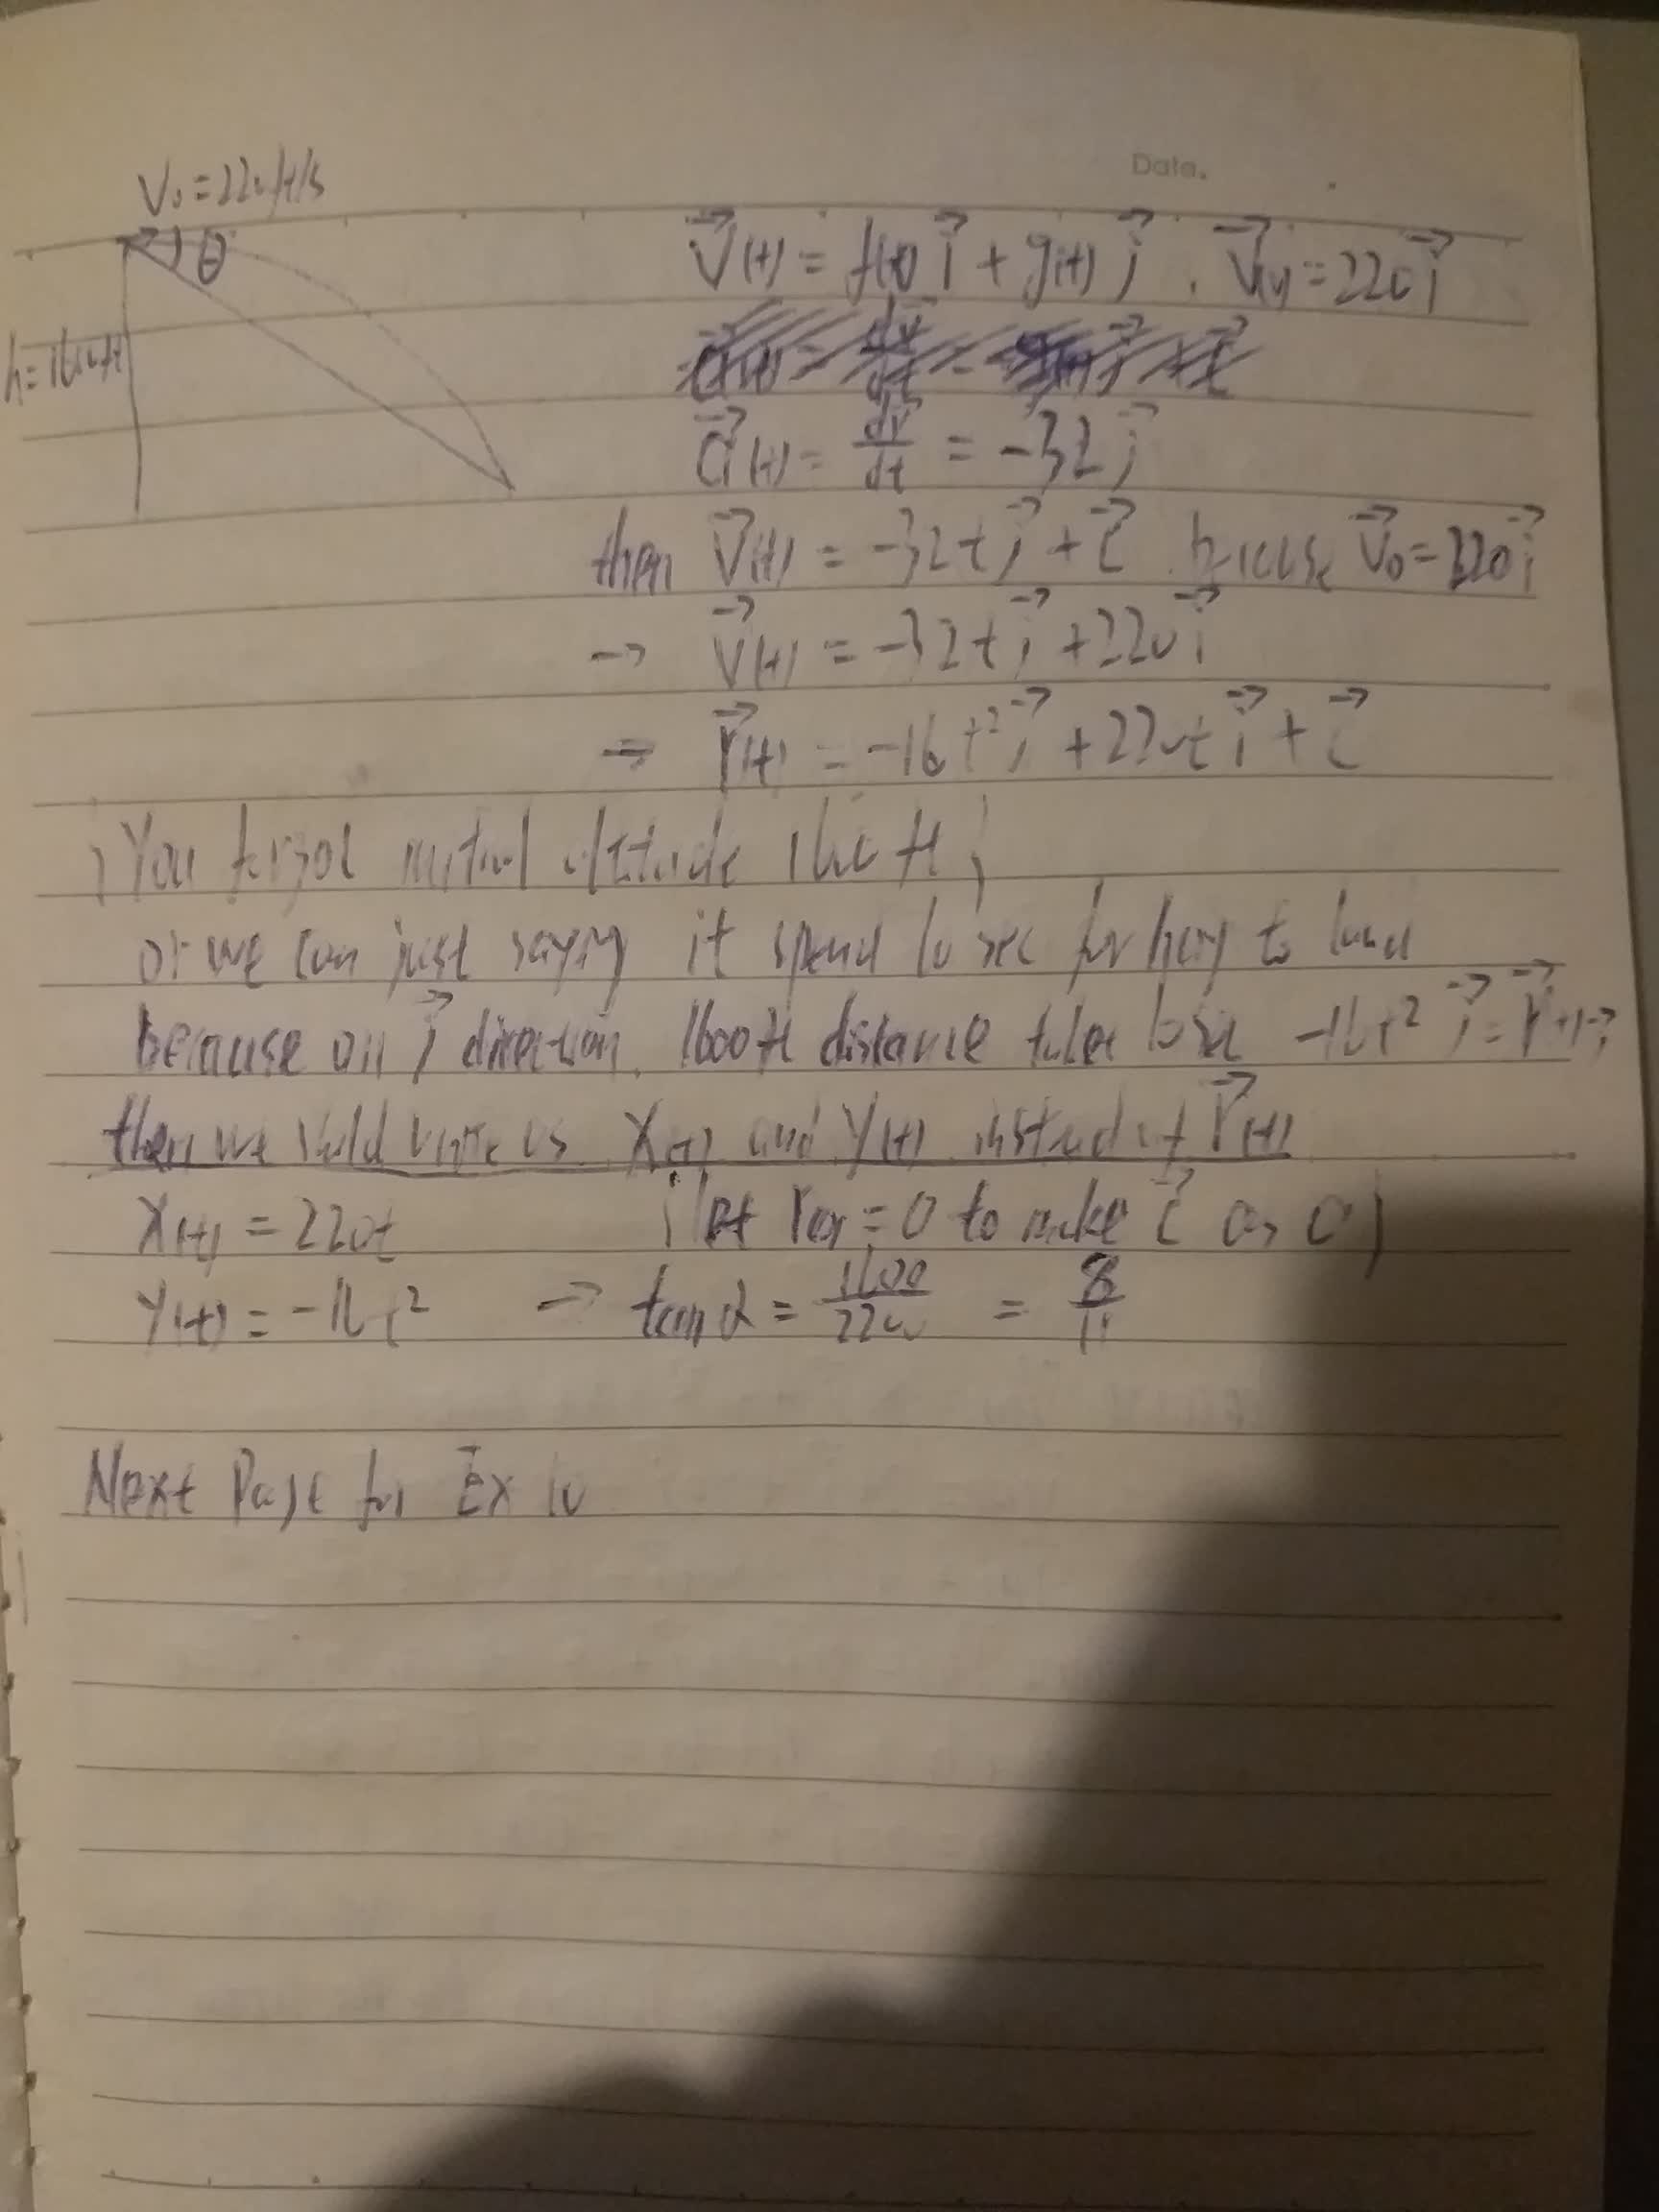 Date.
V₀ = 220 ft/s
θ
h = 1600 ft
V⃗(t) = f(t) i⃗ + g(t) j⃗ . V⃗(0) = 220 i⃗
a⃗(t) = dv⃗/dt = -32 j⃗
then V⃗(t) = -32t j⃗ + C⃗ because V⃗₀ = 220 i⃗
→ V⃗(t) = -32t j⃗ + 220 i⃗
→ r⃗(t) = -16t² j⃗ + 220t i⃗ + C⃗
You forgot initial altitude 1600 ft
or we can just saying it spend 10 sec for hay to land
because on j⃗ direction, 1600 ft distance takes 10 sec -16t² j⃗ = r⃗(t)
then we could write as X(t) and Y(t) instead of r⃗(t)
X(t) = 220t (let r(0) = 0 to make C⃗ as 0)
Y(t) = -16t² → tan α = 1600/2200 = 8/11
Next Page for Ex 10